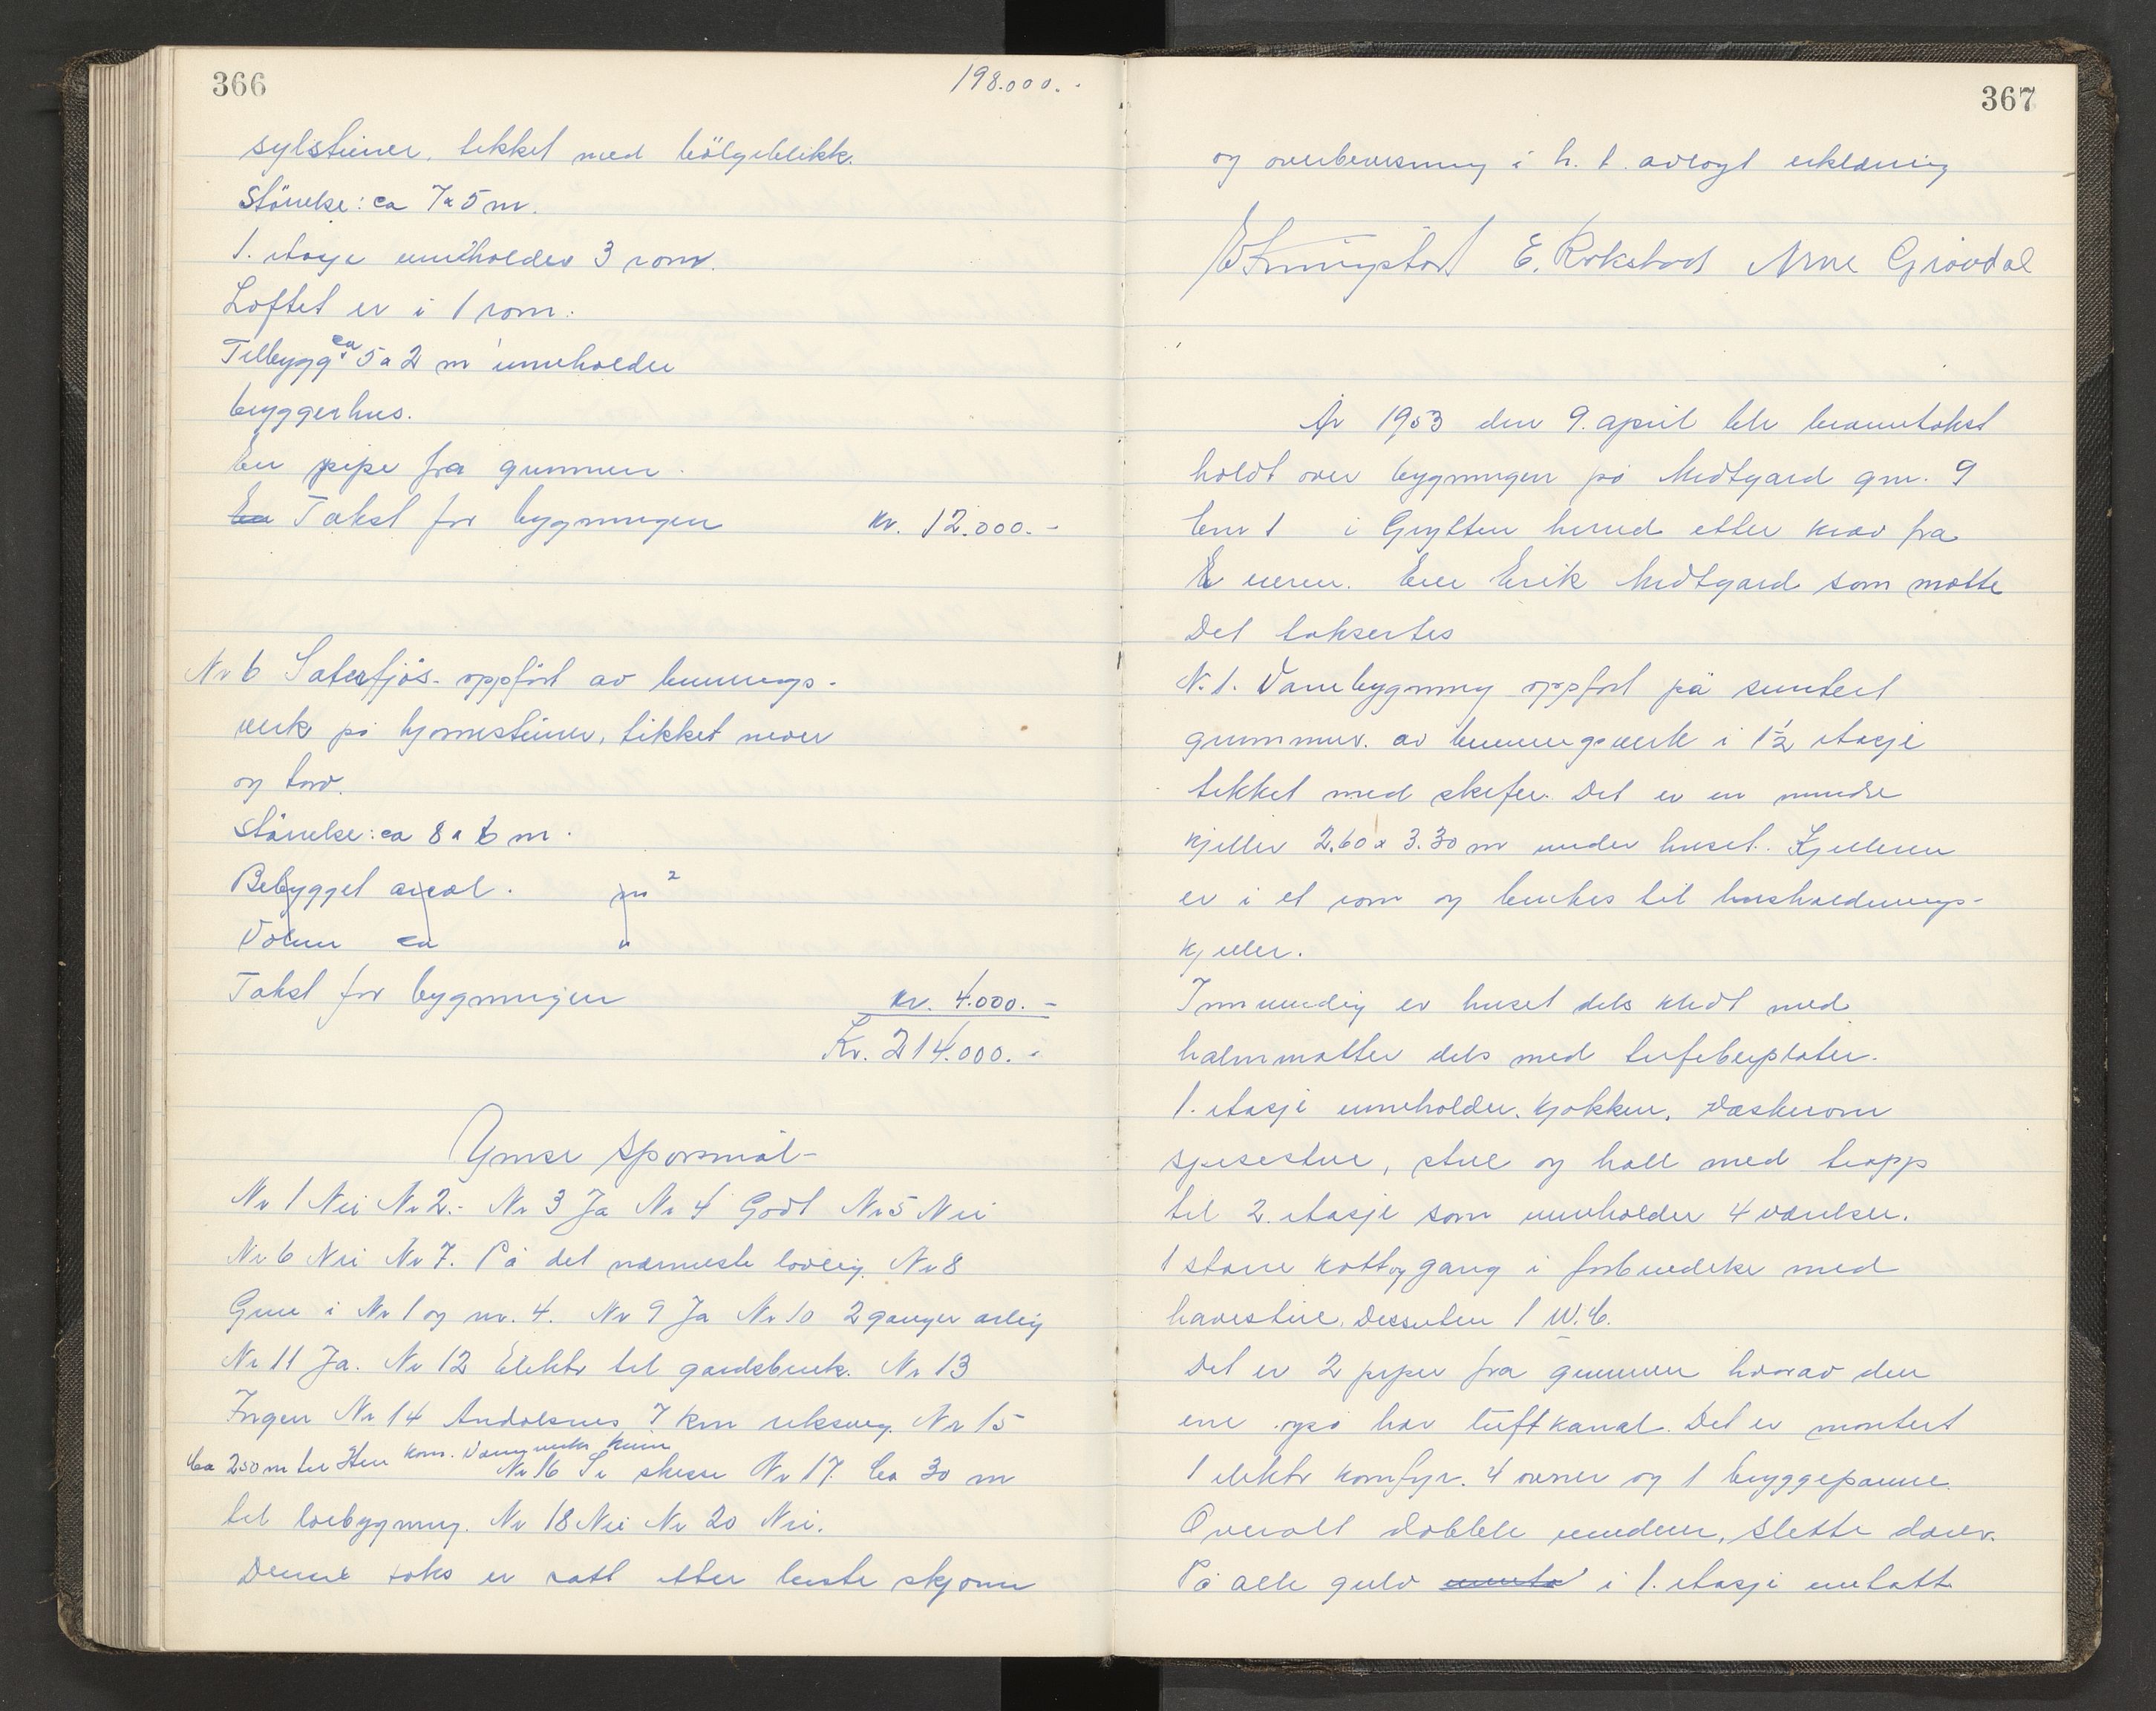 366
198.000.-
sylsteiner, tekket med bölgeblikk.
Störrelse: ca 7 x 5 m.
1. etasje inneholder 3 rom.
Loftet er i 1 rom.
Tilbygg ca 5 x 2 m inneholder
bryggerhus.
En pipe fra grunnen.
En Takst for bygningen kr. 12.000.-
Nr 6 Sæterfjös - oppfört av bindings-
verk på hjørnesteiner, tekket never
og torv.
Störrelse: ca 8 x 6 m.
Bebygget areal. m²
Volum ca "
Takst for bygningen kr. 4.000.-
Kr. 214.000.-
Ymse spørsmål-
Nr 1 Nei Nr 2.- Nr 3 Ja Nr 4 Godt Nr 5 Nei
Nr 6 Nei Nr 7. På det nærmeste lovlig. Nr 8
Grue i Nr 1 og nr. 4. Nr 9 Ja Nr 10 2 ganger årlig
Nr 11 Ja. Nr 12 Elektr til gardsbruk. Nr 13
Ingen Nr 14 Åndalsnes 7 km riksveg. Nr 15
Ca 250 m til Hen kom. Vannverks kum
Nr 16 Se skisse Nr 17. Ca 30 m
til løebygning. Nr 18 Nei Nr 20 Nei.
Denne takst er satt etter beste skjønn
367
og overbevisning i h. t. avlagt erklæring
E. Rokstad Arne Grøvdal
År 1953 den 9. april ble branntakst
holdt over bygningen på Midtgard gnr. 9
bnr 1 i Grytten herred etter krav fra
eieren. Erik Midtgard som møtte
Det taksertes
N. 1. Vånebygning oppført på sementert
grunnmur. av bindingsverk i 1½ etasje
tekket med skifer. Det er en mindre
kjeller 2.60 x 3.30 m under huset. Kjelleren
er i et rom og brukes til husholdnings-
kjeller.
Innvendig er huset dels kledt med
halmmatter dels med trefiberplater.
1. etasje inneholder. kjøkken, vaskerom
spisestue, stue og hall med trapp
til 2. etasje som inneholder 4 værelser.
1 større kott og gang i forbindelse med
havestue. Dessuten 1 W.C.
Det er 2 piper fra grunnen hvorav den
ene også har luftkanal. Det er montert
1 elektr komfyr. 4 ovner og 1 bryggepanne.
Overalt doble vinduer, slette dører.
På alle gulv i 1. etasje untatt